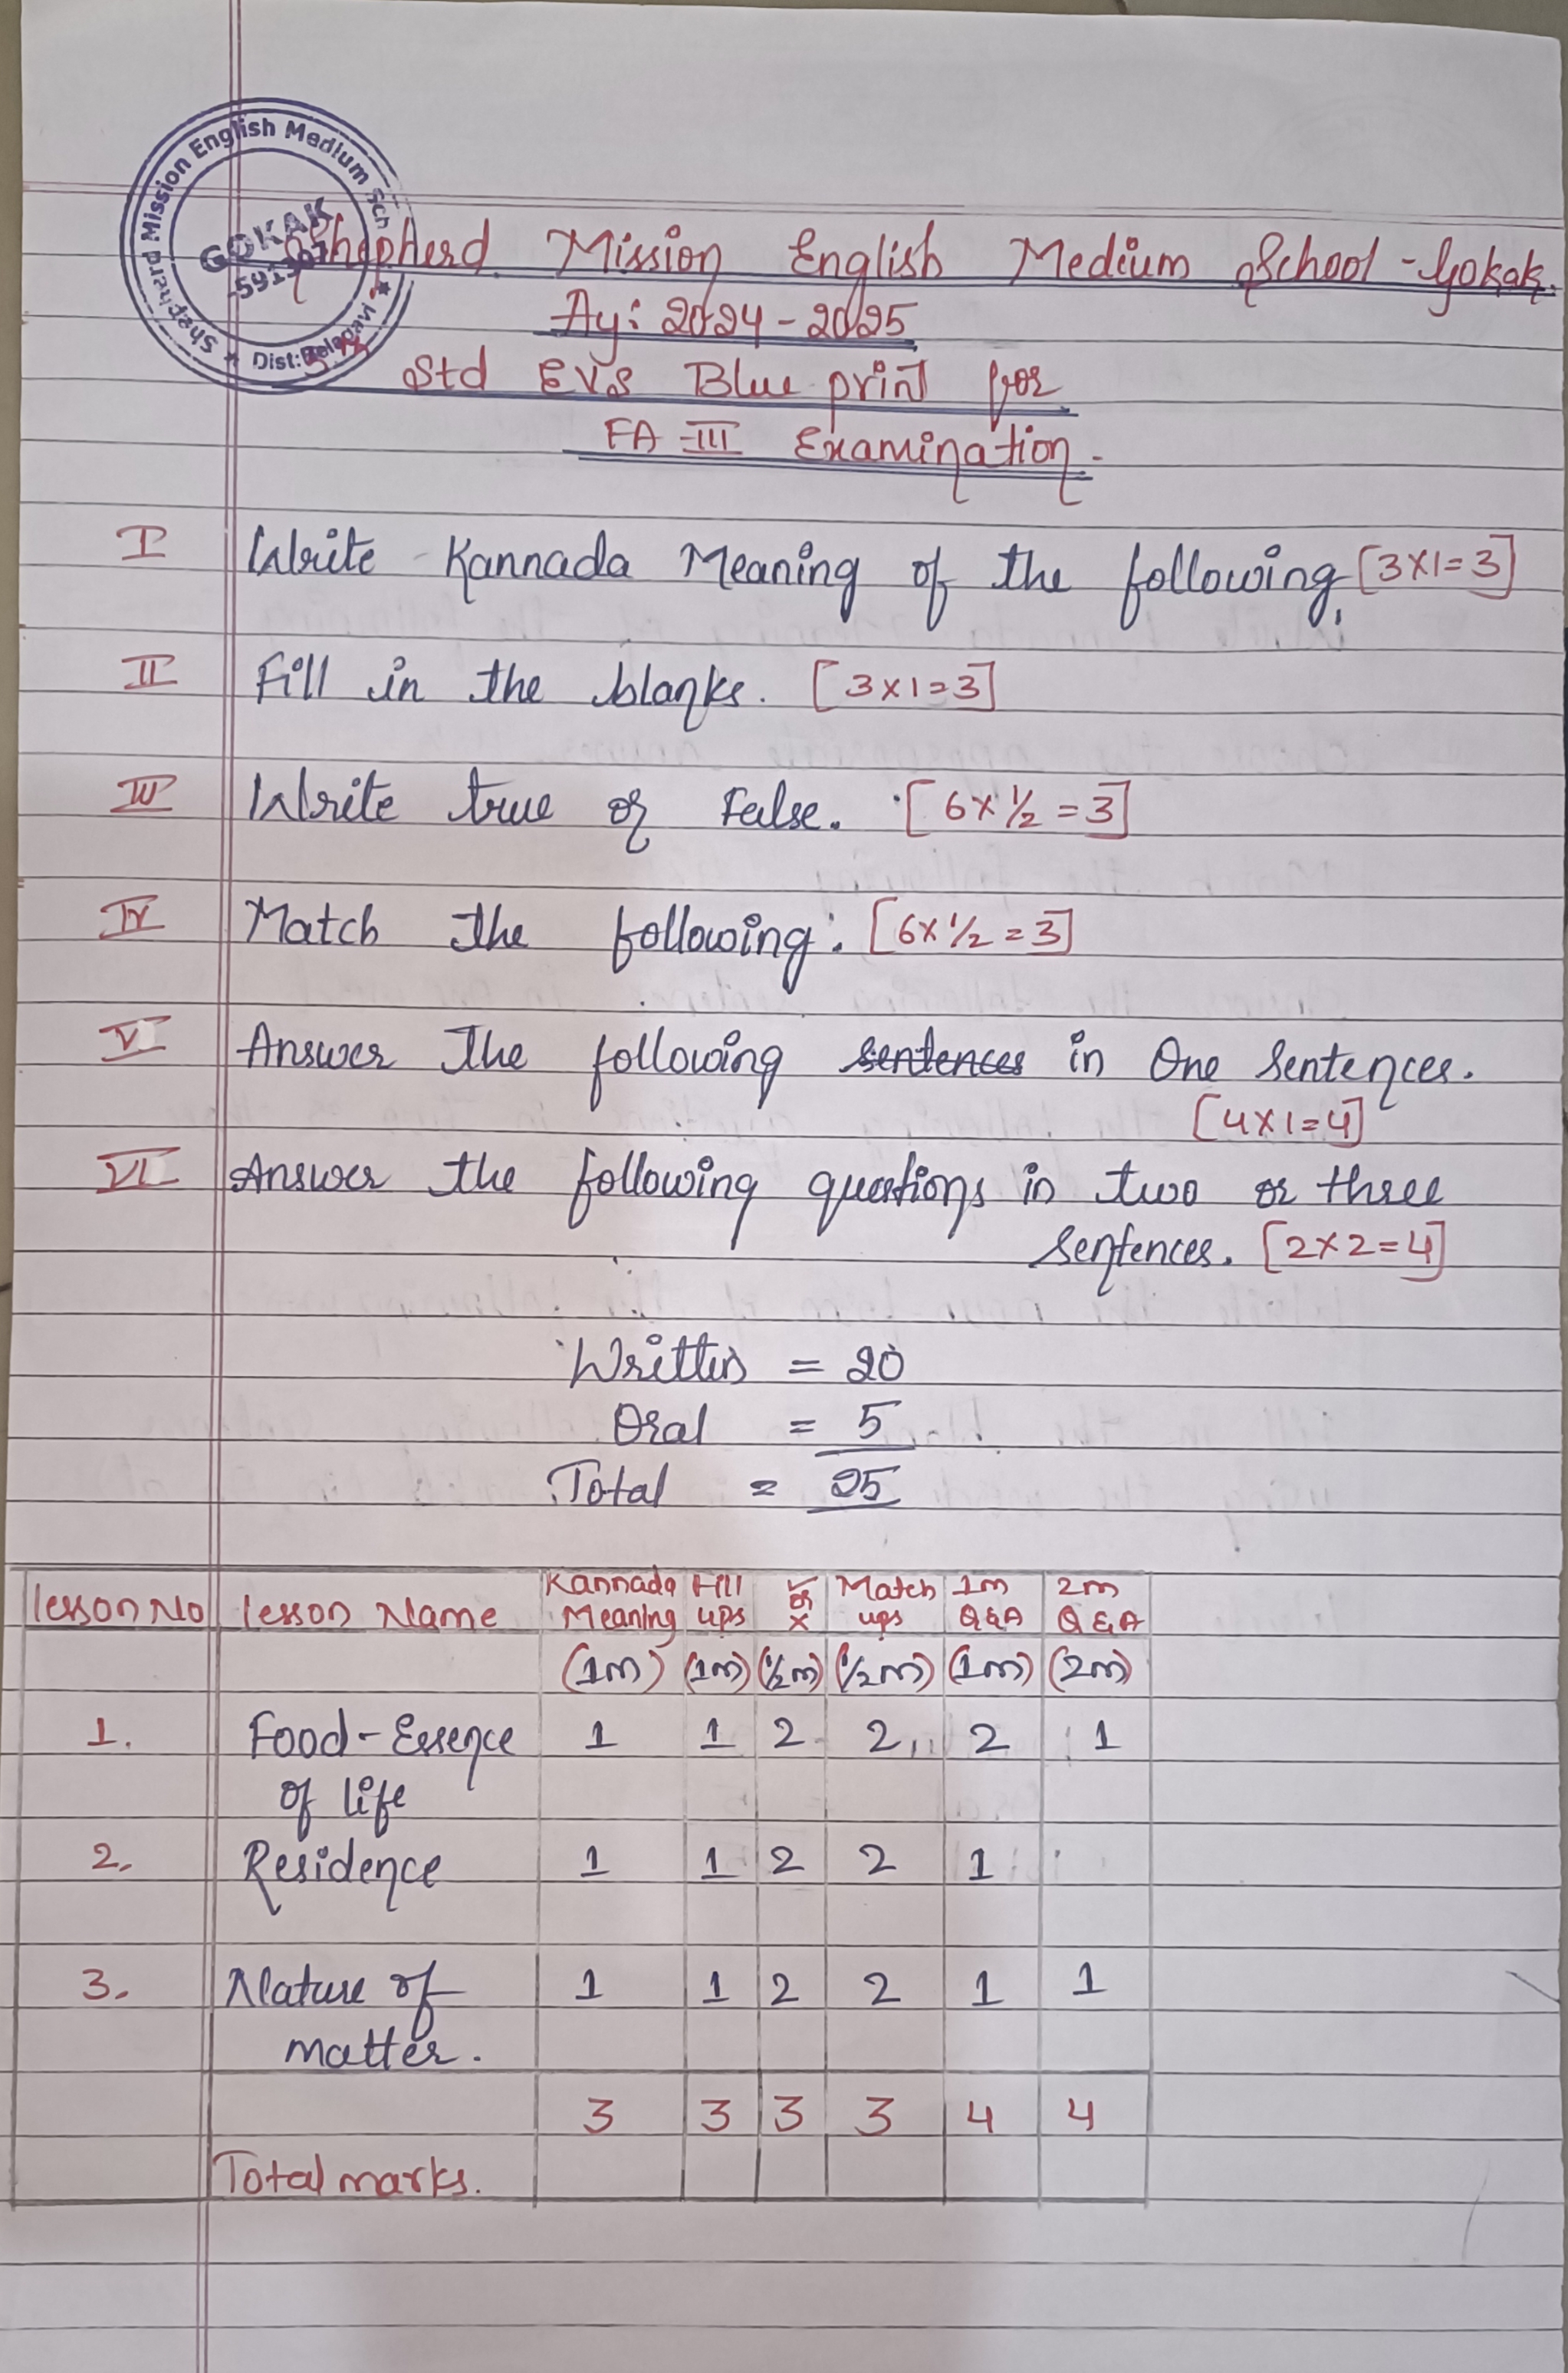 Shepherd Mission English Medium Sch
GOKAK
-591307
Dist: Belagavi
Shepherd Mission English Medium School - Gokak.
Ay: 2024-2025
Std EVS Blue print for
FA-III Examination-
I Write Kannada Meaning of the following, [3x1=3]
II Fill in the blanks. [3x1=3]
III Write true or False. [6x½=3]
IV Match the following: [6x½=3]
V Answer the following sentences in One Sentences.
[4x1=4]
VI Answer the following questions in two or three
sentences. [2x2=4]
Written = 20
Oral = 5
Total = 25
lesson No lesson Name Kannada Meaning Fill ups ✓ or x Match ups 1m Q&A 2m Q&A
(1m) (1m) (½m) (½m) (1m) (2m)
1. Food-Essence 1 1 2 2 2 1
of life
2. Residence 1 1 2 2 1
3. Nature of 1 1 2 2 1 1
matter.
3 3 3 3 4 4
Total marks.